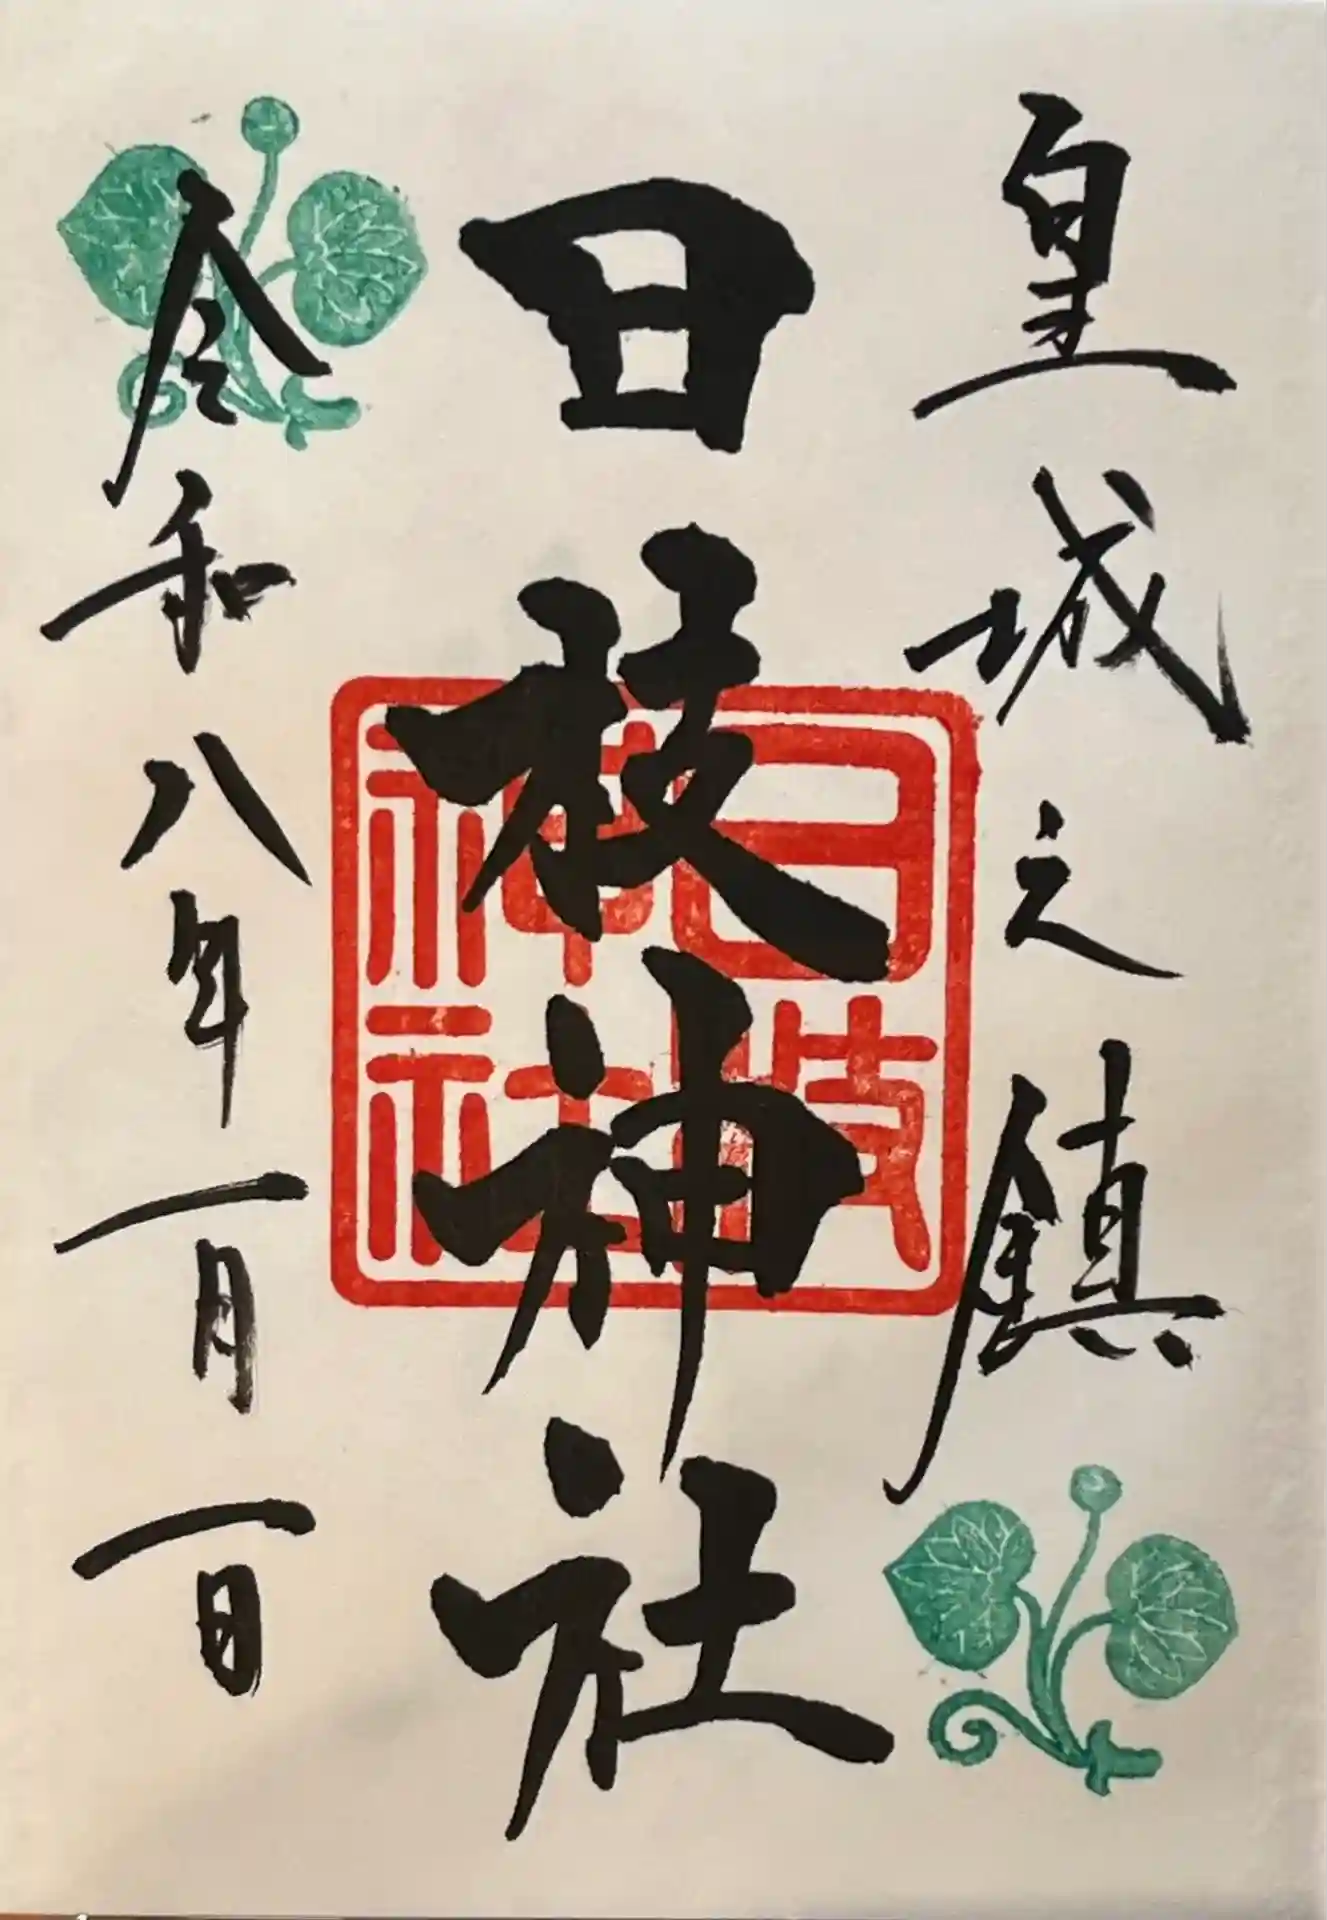 皇城之鎮
日枝神社
日枝
神社
令和八年一月一日